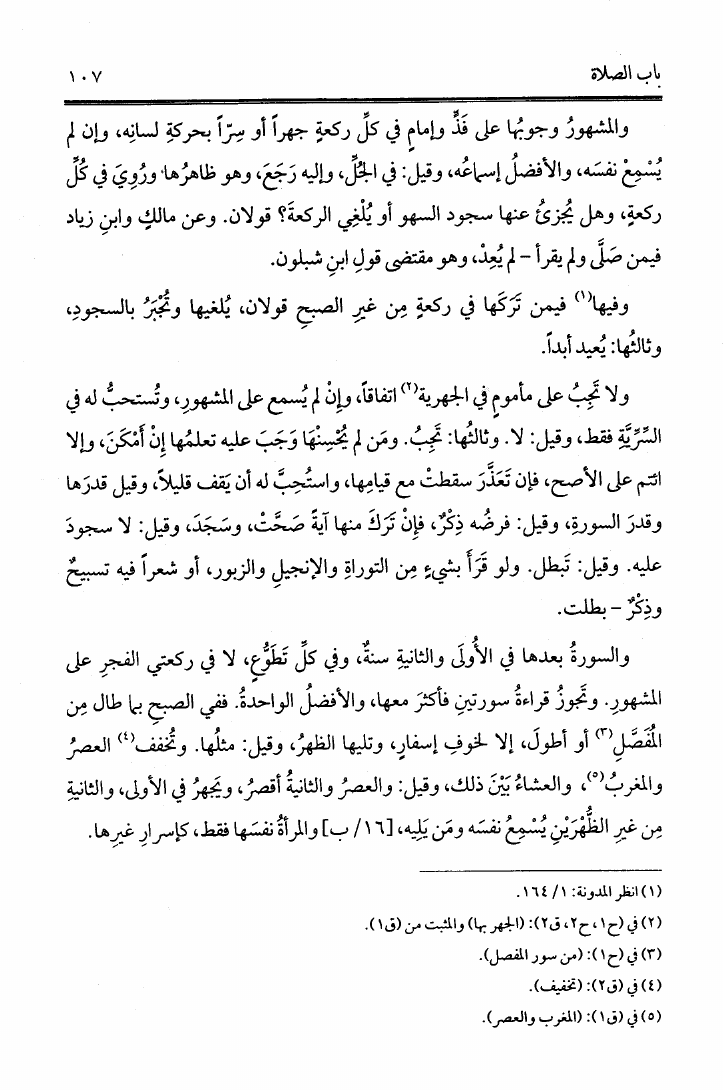 باب الصلاة ١٠٧
والمشهورُ وجوبُها على فَذٍّ وإمامٍ في كلِّ ركعةٍ جهراً أو سِرّاً بحركةِ لسانِه، وإن لم
يُسْمِعْ نفسَه، والأفضلُ إسماعُه، وقيل: في الجُلِّ، وإليه رَجَعَ، وهو ظاهرُها. ورُوِيَ في كُلِّ
ركعةٍ، وهل يُجزئُ عنها سجود السهو أو يُلْغِي الركعةَ؟ قولان. وعن مالكٍ وابنِ زياد
فيمن صَلَّى ولم يقرأ – لم يُعِدْ، وهو مقتضى قولِ ابنِ شبلون.
وفيها(١) فيمن تَرَكَها في ركعةٍ مِن غيرِ الصبحِ قولان، يُلغيها وتُجْبَرُ بالسجودِ،
وثالثُها: يُعيد أبداً.
ولا تَجِبُ على مأمومٍ في الجهرية(٢) اتفاقاً، وإنْ لم يُسمع على المشهورِ، وتُستحبُّ له في
السِّرِّيَّةِ فقط، وقيل: لا. وثالثُها: تَجِبُ. ومَن لم يُحْسِنْهَا وَجَبَ عليه تعلمُها إنْ أَمْكَنَ، وإلا
ائتم على الأصح، فإن تَعَذَّرَ سقطتْ مع قيامِها، واستُحِبَّ له أن يَقف قليلاً، وقيل قدرَها
وقدرَ السورةِ، وقيل: فرضُه ذِكْرٌ، فإنْ تَرَكَ منها آيةً صَحَّتْ، وسَجَدَ، وقيل: لا سجودَ
عليه. وقيل: تَبطل. ولو قَرَأَ بشيءٍ مِن التوراةِ والإنجيلِ والزبورِ، أو شعراً فيه تسبيحٌ
وذِكْرٌ – بطلت.
والسورةُ بعدها في الأُولَى والثانيةِ سنةٌ، وفي كلِّ تَطَوُّعٍ، لا في ركعتي الفجرِ على
المشهورِ. وتَجوزُ قراءةُ سورتينِ فأكثرَ معها، والأفضلُ الواحدةُ. ففي الصبحِ بما طال مِن
المُفَصَّلِ(٣) أو أطولَ، إلا لخوفِ إسفارٍ، وتليها الظهرُ، وقيل: مثلُها. وتُخفف(٤) العصرُ
والمغربُ(٥)، والعشاءُ بَيْنَ ذلك، وقيل: والعصرُ والثانيةُ أقصرُ، ويَجهرُ في الأولى، والثانيةِ
مِن غيرِ الظُّهْرَيْنِ يُسْمِعُ نفسَه ومَن يَلِيه، [١٦/ ب] والمرأةُ نفسَها فقط، كإسرارِ غيرِها.
(١) انظر المدونة: ١/ ١٦٤.
(٢) في (ح١، ح٢، ق٢): (الجهر بها) والمثبت من (ق١).
(٣) في (ح١): (من سور المفصل).
(٤) في (ق٢): (تخفيف).
(٥) في (ق١): (المغرب والعصر).